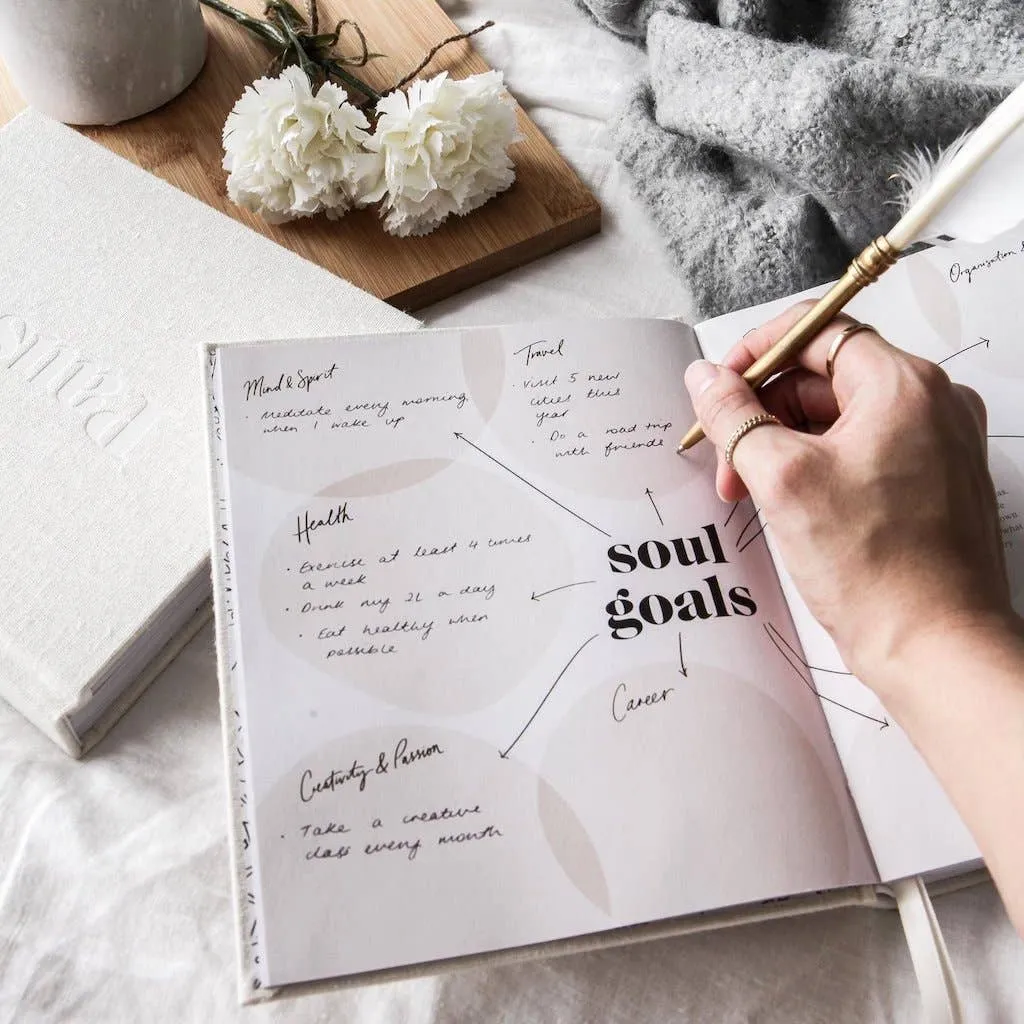 Mind & Spirit
· Meditate every morning
when I wake up
Travel
· Visit 5 new
cities this
year
· Do a road trip
with friends
Organisation &
Health
· Exercise at least 4 times
a week
· Drink my 2L a day
· Eat healthy when
possible
soul
goals
Career
Creativity & Passion
· Take a creative
class every month
what